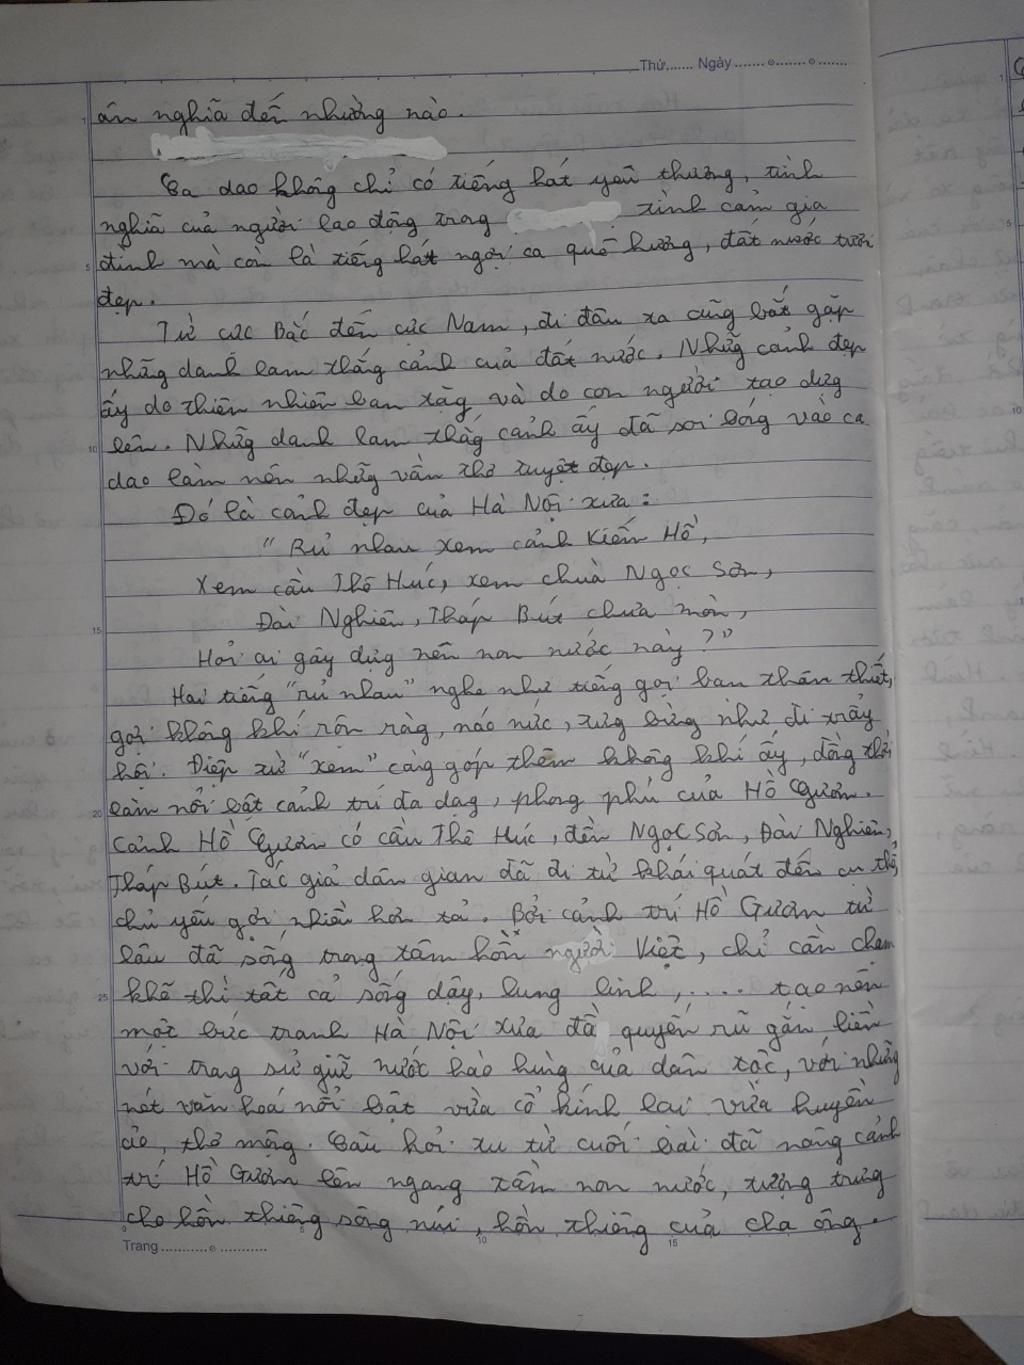 Thứ....... Ngày ....... ....... .......
ân nghĩa đến nhường nào.
Ca dao không chỉ có tiếng hát yêu thương, tình
nghĩa của người lao động trong tình cảm gia
đình mà còn là tiếng hát ngợi ca quê hương, đất nước tươi
đẹp.
Từ cực Bắc đến cực Nam, đi đâu ta cũng bắt gặp
những danh lam thắng cảnh của đất nước. Những cảnh đẹp
ấy do thiên nhiên ban tặng và do con người tạo dựng
lên. Những danh lam thắng cảnh ấy đã soi bóng vào ca
dao làm nên những vần thơ tuyệt đẹp.
Đó là cảnh đẹp của Hà Nội xưa:
"Rủ nhau xem cảnh Kiếm Hồ,
Xem cầu Thê Húc, xem chùa Ngọc Sơn,
Đài Nghiên, Tháp Bút chưa mòn,
Hỏi ai gây dựng nên non nước này?"
Hai tiếng "rủ nhau" nghe như tiếng gọi bạn thân thiết,
gợi không khí rộn ràng, náo nức, tưng bừng như đi trẩy
hội. Điệp từ "xem" càng góp thêm không khí ấy, đồng thời
làm nổi bật cảnh trí đa dạng, phong phú của Hồ Gươm.
Cảnh Hồ Gươm có cầu Thê Húc, đền Ngọc Sơn, Đài Nghiên,
Tháp Bút. Tác giả dân gian đã đi từ khái quát đến cụ thể,
chủ yếu gợi nhiều hơn tả. Bởi cảnh trí Hồ Gươm từ
lâu đã sống trong tâm hồn người Việt, chỉ cần chạm
khẽ thì tất cả sống dậy, lung linh, .... tạo nên
một bức tranh Hà Nội xưa đầy quyến rũ gắn liền
với trang sử giữ nước hào hùng của dân tộc, với những
nét văn hoá nổi bật vừa cổ kính lại vừa huyền
ảo, thơ mộng. Câu hỏi tu từ cuối bài đã nâng cảnh
trí Hồ Gươm lên ngang tầm non nước, tượng trưng
cho hồn thiêng sông núi, hồn thiêng của cha ông.
Trang ........... ...........